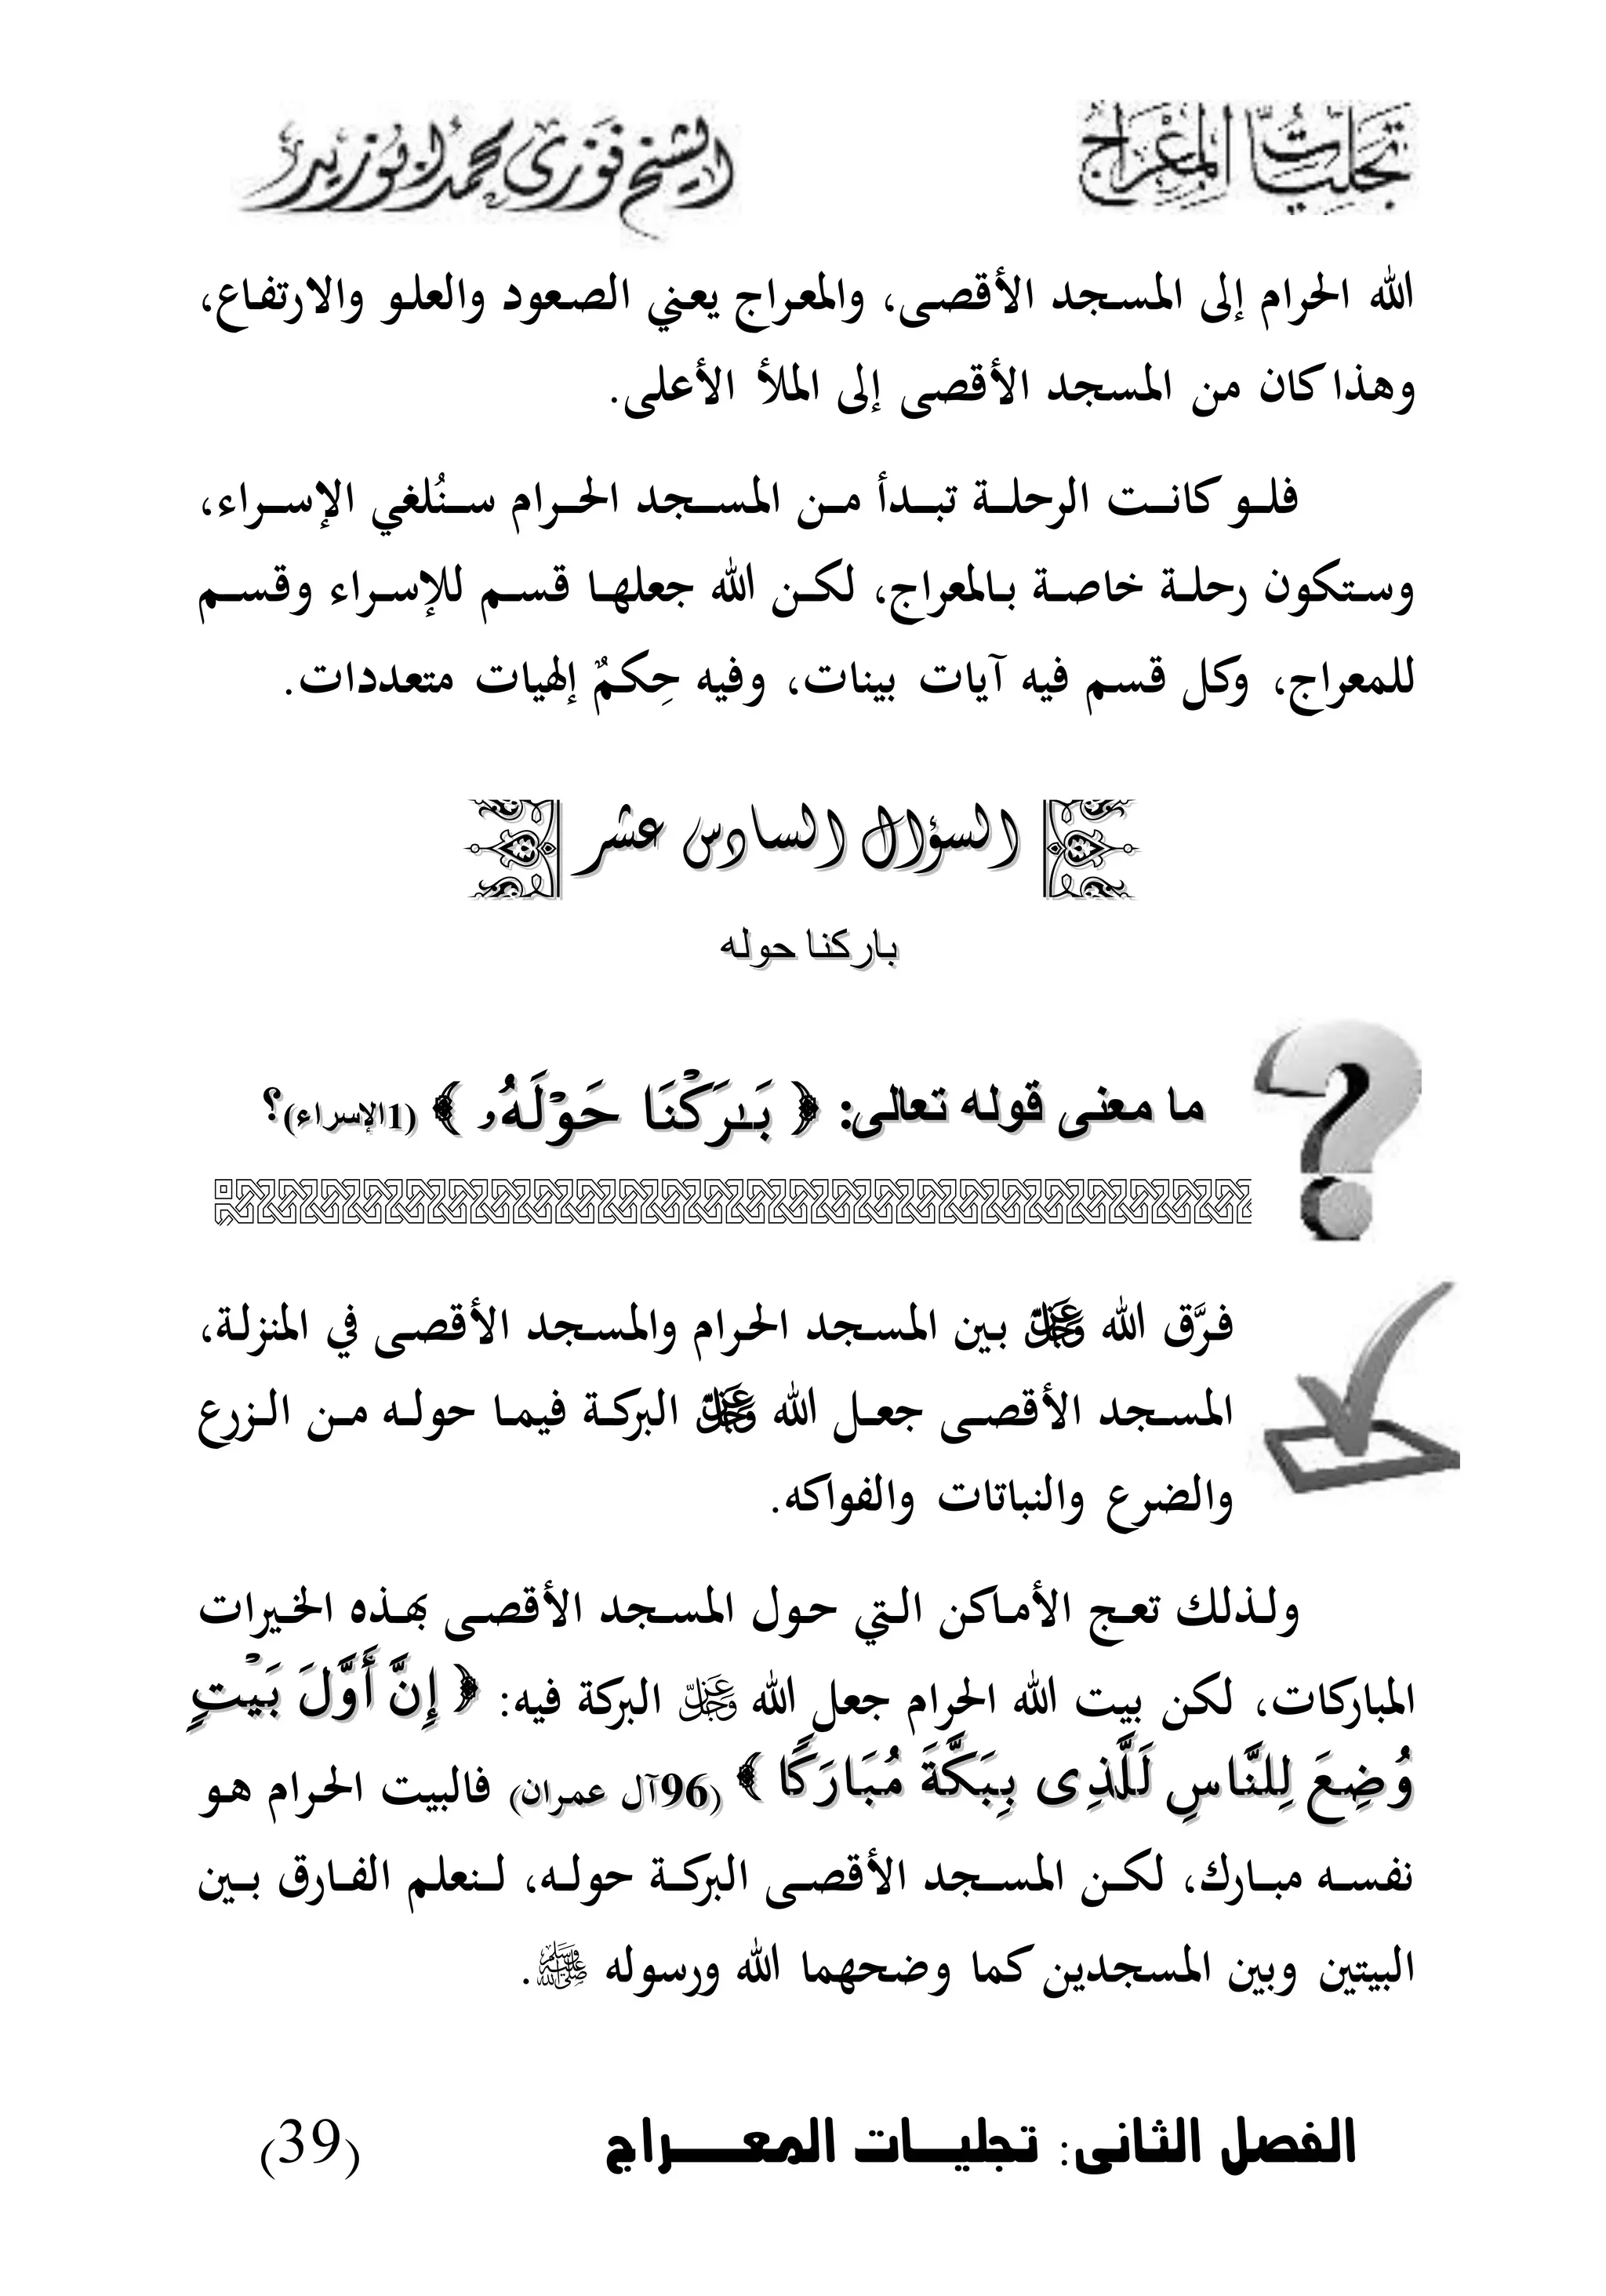 تجليات المعراج
الشيخ فوزى محمد أبوزيد
الله الحرام إلى المسجد الأقصى، والمعراج يعني الصعود والعلو والارتفاع،
وهذا كان من المسجد الأقصى إلى الملأ الأعلى.
فلو كانت الرحلة تبدأ من المسجد الحرام سنُلغي الإسراء،
وستكون رحلة خاصة بالمعراج، لكن الله جعلها قسم للإسراء وقسم
للمعراج، وكل قسم فيه آيات بينات، وفيه حِكمٌ إلهيات متعددات.
السؤال السادس عشر
باركنا حوله
ما معنى قوله تعالى: ﴿ بَـٰرَكْنَا حَوْلَهُۥ ﴾ (1الإسراء)؟
فرَّق الله عز وجل بين المسجد الحرام والمسجد الأقصى في المنزلة،
المسجد الأقصى جعل الله عز وجل البركة فيما حوله من الزرع
والضرع والنباتات والفواكه.
ولذلك تعج الأماكن التي حول المسجد الأقصى بهذه الخيرات
المباركات، لكن بيت الله الحرام جعل الله عز وجل البركة فيه: ﴿ إِنَّ أَوَّلَ بَيْتٍ
وُضِعَ لِلنَّاسِ لَلَّذِى بِبَكَّةَ مُبَارَكًا ﴾ (96آل عمران) فالبيت الحرام هو
نفسه مبارك، لكن المسجد الأقصى البركة حوله، لنعلم الفارق بين
البيتين وبين المسجدين كما وضحهما الله ورسوله ﷺ.
الفصل الثانى: تجليات المعراج (39)